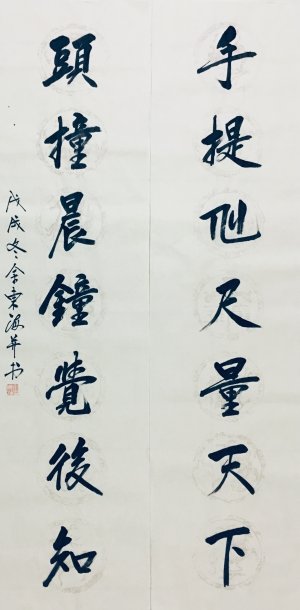 手提尺量天下
頭撞晨鐘覺後知
戊戌冬東海并书